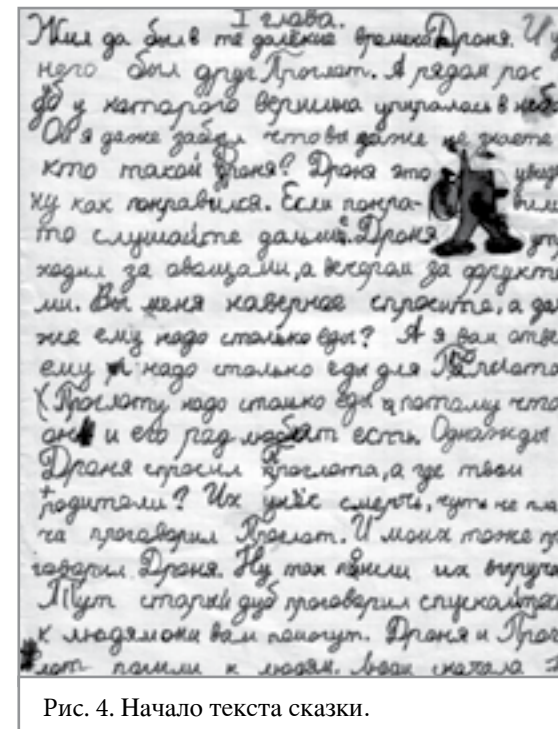 I глава.
Жил да был в те далёкие времена Дроня. И у
него был друг Проглот. А рядом рос
дуб у каторого вершина упиралась в неб
Ой я даже забыл что вы даже не знаете
кто такой Дроня? Дроня это увид
ну как понравился. Если понра- вился
то слушайте дальше. Дроня ут
ходил за авощами, а вечером за фрукта
ми. Вы меня наверное спросите, а за
же ему надо столько еды? А я вам отве
ему надо столько еды для Проглота
(Проглоту надо столко еды потому что
он и его род любят есть. Однажды
Дроня спросил Проглота, а где твои
родители? Их унёс смерчь, чуть не пла
ча проговорил Проглот. И моих тоже пр
говорил Дроня. Ну так пошли их выруча
Тут старый дуб проговорил спускайтесь
к людям они вам помогут. Дроня и Прог
лот пошли к людям. Люди сначала
Рис. 4. Начало текста сказки.